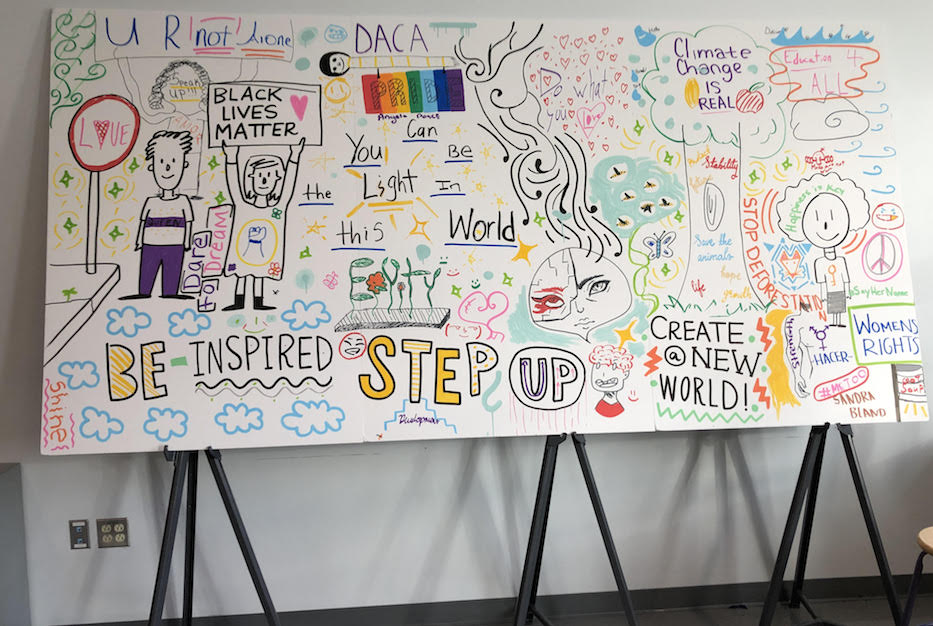 U R not Alone
Speak
up!!!
LOVE
BLACK
LIVES
MATTER
Dare
to Dream
DACA
PRIDE
You Can Be
the Light In
this World
Equity
Do what
you
Love
Climate
Change
IS
REAL
Education 4
ALL
Stability
Save the
animals
hope
life
growth
STOP DEFORESTATION
Happiness is Key
#SayHerName
WOMENS
RIGHTS
#METOO
SANDRA
BLAND
Shine
BE-INSPIRED
STEP UP
Development
CREATE
@ NEW
WORLD!